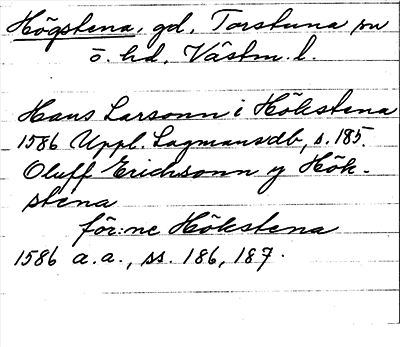 Högstena, gd, Torstuna sn
ö. hd, Västm. l.
Hans Larsonn i Hökstena
1586 Uppl. Lagmansdb, s. 185.
Oluff Erichsonn y Hök-
stena
för:ne Hökstena
1586 a.a., ss. 186, 187.